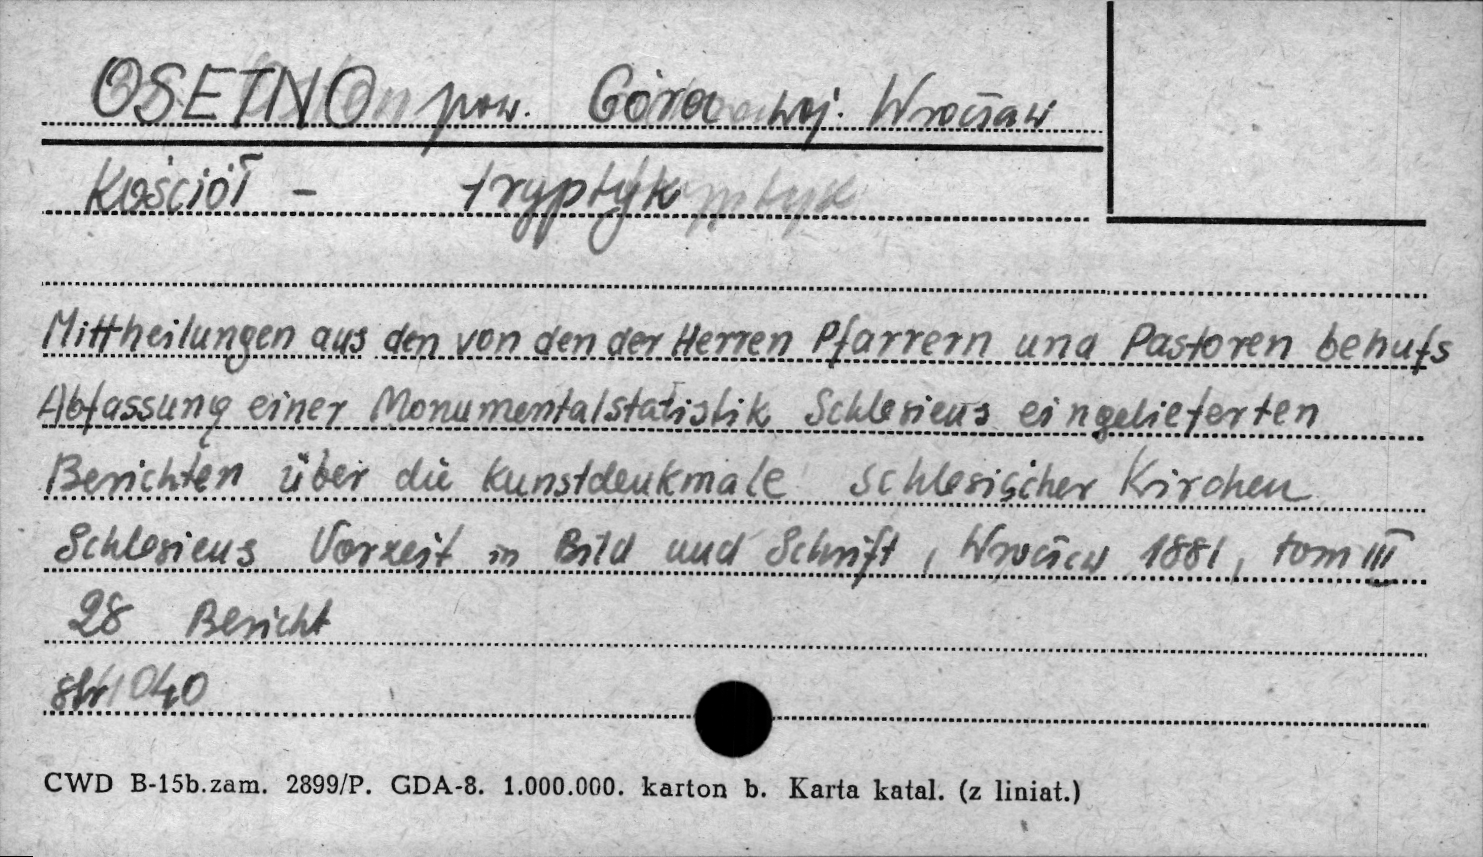 OSETNO pow. Góra woj. Wrocław
Kościół - tryptyk
Mittheilungen aus den von den der Herren Pfarrern und Pastoren behufs
Abfassung einer Monumentalstatistik Schlesiens eingelieferten
Berichten über die Kunstdenkmale schlesischer Kirchen
Schlesiens Vorzeit in Bild und Schrift, Wrocław 1881, tom III
28 Bericht
str 040
CWD B-15b.zam. 2899/P. GDA-8. 1.000.000. karton b. Karta katal. (z liniat.)